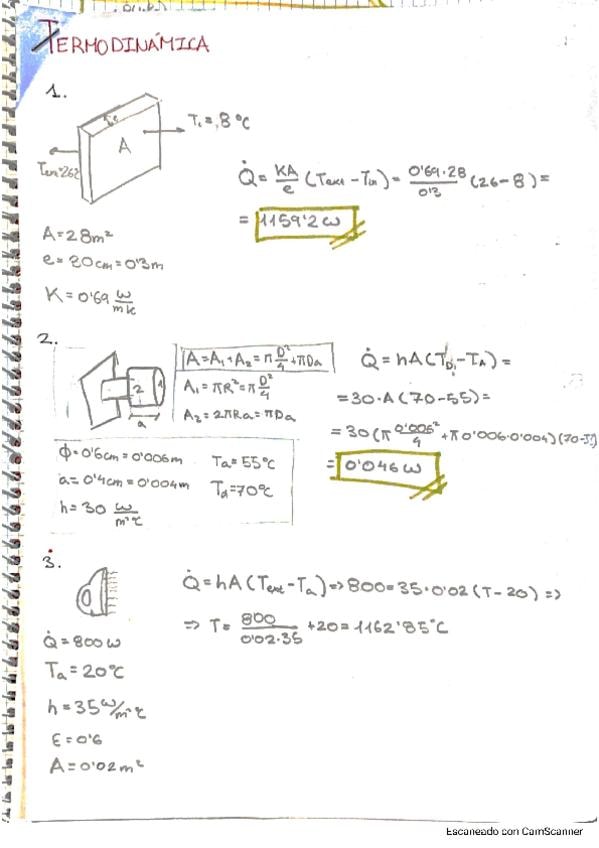 TERMODINÁMICA
1.
T₁=,8°C
A
Q̇ = KA/e (Text - Tin) = 0'69·28/0'3 (26-8) =
= 1159'2 W
A=28m²
e= 20cm=0'3m
K=0'69 W/mk
2.
A=A₁+A₂=π D²/4 + πDa
A₁=πR²=π D²/4
A₂=2πRa=πDa
2 1
a
Q̇ = hA(TD₁-TA) =
=30·A(70-55)=
=30(π 0'006²/4 + π0'006·0'004)(70-55)
= 0'046 W
Φ=0'6cm=0'006m
a=0'4cm=0'004m
h=30 W/m²°C
Ta=55°C
Td=70°C
3.
Q̇=hA(Text-Ta)=>800=35·0'02(T-20)=>
=> T= 800/0'02·35 +20=1162'85°C
Q̇=800W
Ta=20°C
h=35W/m²°C
ε=0'6
A=0'02m²
Escaneado con CamScanner